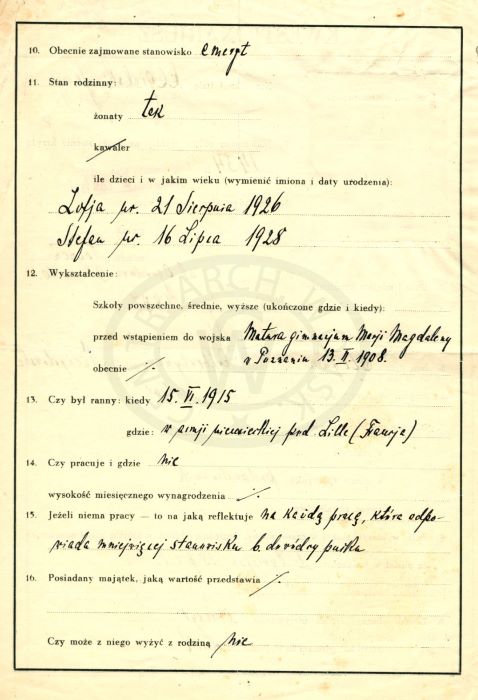 10. Obecnie zajmowane stanowisko emeryt
11. Stan rodzinny:
żonaty tak
kawaler
ile dzieci i w jakim wieku (wymienić imiona i daty urodzenia):
Zofja ur. 21 Sierpnia 1926
Stefan ur. 16 Lipca 1928
12. Wykształcenie:
Szkoły powszechne, średnie, wyższe (ukończone gdzie i kiedy):
przed wstąpieniem do wojska Matura gimnazjum Marji Magdaleny
w Poznaniu 13. II. 1908.
obecnie ·/.
13. Czy był ranny: kiedy 15. VI. 1915
gdzie: w armji niemieckiej pod Lille (Francja)
14. Czy pracuje i gdzie nie
wysokość miesięcznego wynagrodzenia ·/.
15. Jeżeli niema pracy — to na jaką reflektuje na każdą pracę, która odpo-
wiada mniejwięcej stanowisku b. dowódcy pułku
16. Posiadany majątek, jaką wartość przedstawia ·/.
Czy może z niego wyżyć z rodziną nie